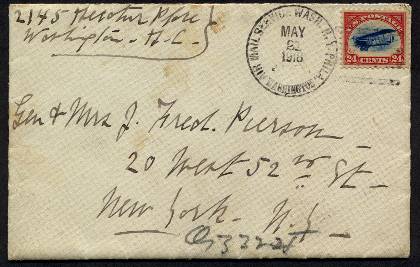 2145 Decatur Place
Washington - D.C.
AIR MAIL SERVICE WASH. N.Y. PHILA.
MAY
1918
WASHINGTON
U.S. POSTAGE
24 CENTS 24
Gen & Mrs J. Fred. Pierson
20 West 52nd St -
New York - N.Y.